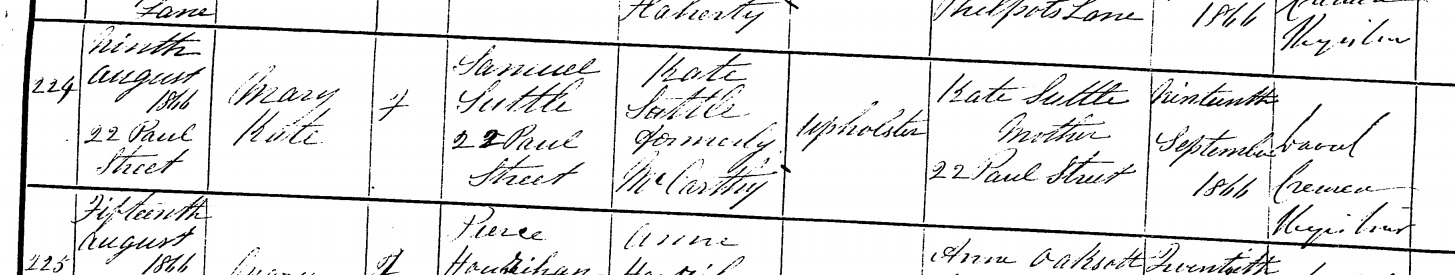 Lane
Flaherty
Philpots Lane
1866
Registrar
224
Ninth
August
1866
22 Paul
Street
Mary
Kate
F
Samuel
Suttle
22 Paul
Street
Kate
Suttle
formerly
McCarthy
Upholster
Kate Suttle
Mother
22 Paul Street
Ninteenth
September
1866
Registrar
225
Fifteenth
August
1866
F
Pierce
Hourihan
Anne
Anne
Twentieth